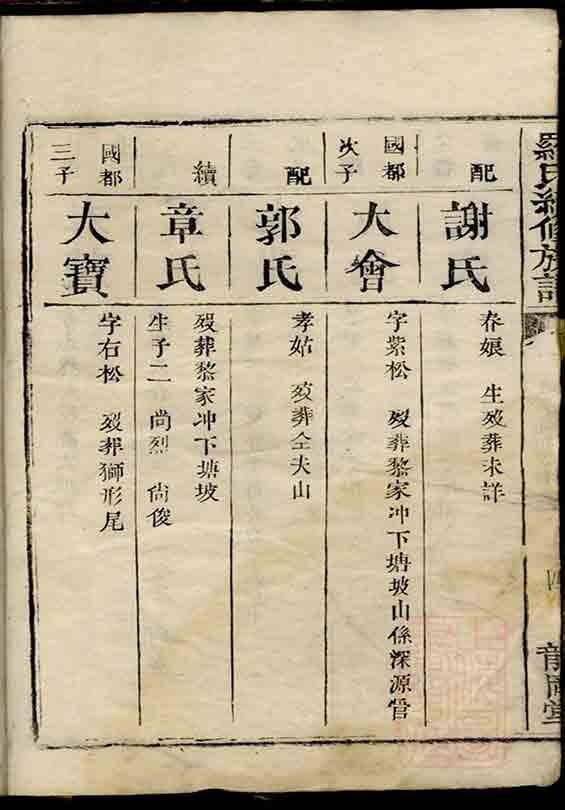 羅氏續修族譜
四
配
謝氏
春娘 生歿葬未詳
國都
次子
大會
字紫松 歿葬黎家冲下塘坡山係深源管
配
郭氏
孝姑 歿葬仝夫山
續
章氏
歿葬黎家冲下塘坡
生子二 尚烈 尚俊
國都
三子
大寶
字右松 歿葬獅形尾